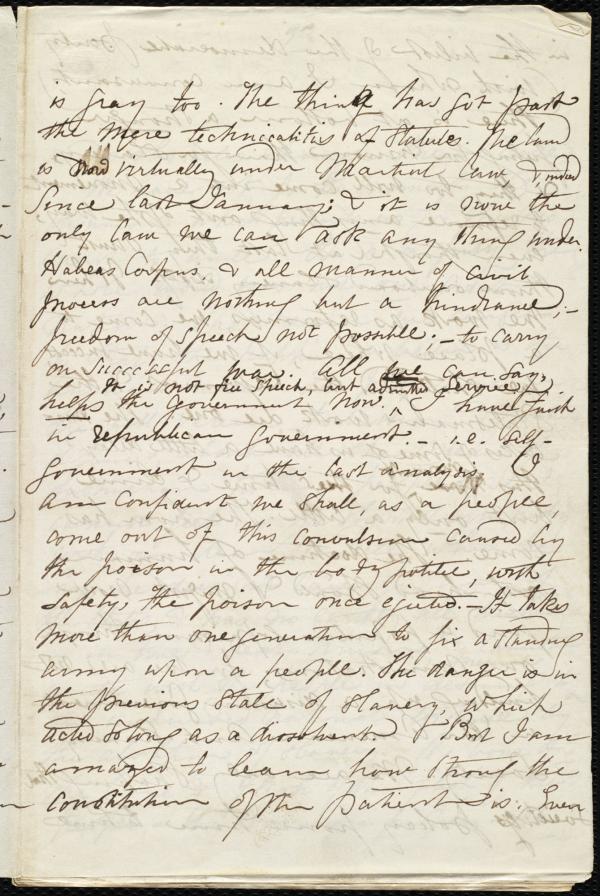 is gray too. The thing has got past
the mere technicalities of Statutes. The land
is now virtually under Martial law & indeed
Since last January; & it is now the
only law we can ask any thing under.
Habeas Corpus, & all manner of civil
process are nothing but a hindrance;-
freedom of speech not possible.- to carry
on successful war. All we can say,
It is not free speech, but admitted service
helps the Government now. ^ I have faith
in republican government.- i.e. self-
government in the last analysis. I
am confident we shall, as a people,
come out of this convulsion caused by
the poison in the body politic, with
safety, the poison once ejected.- It takes
more than one generation to fix a standing
army upon a people. The danger is in
the previous state of slavery, which
acted so long as a dissolvent. But I am
amazed to learn how strong the
constitution of the patient is. Even